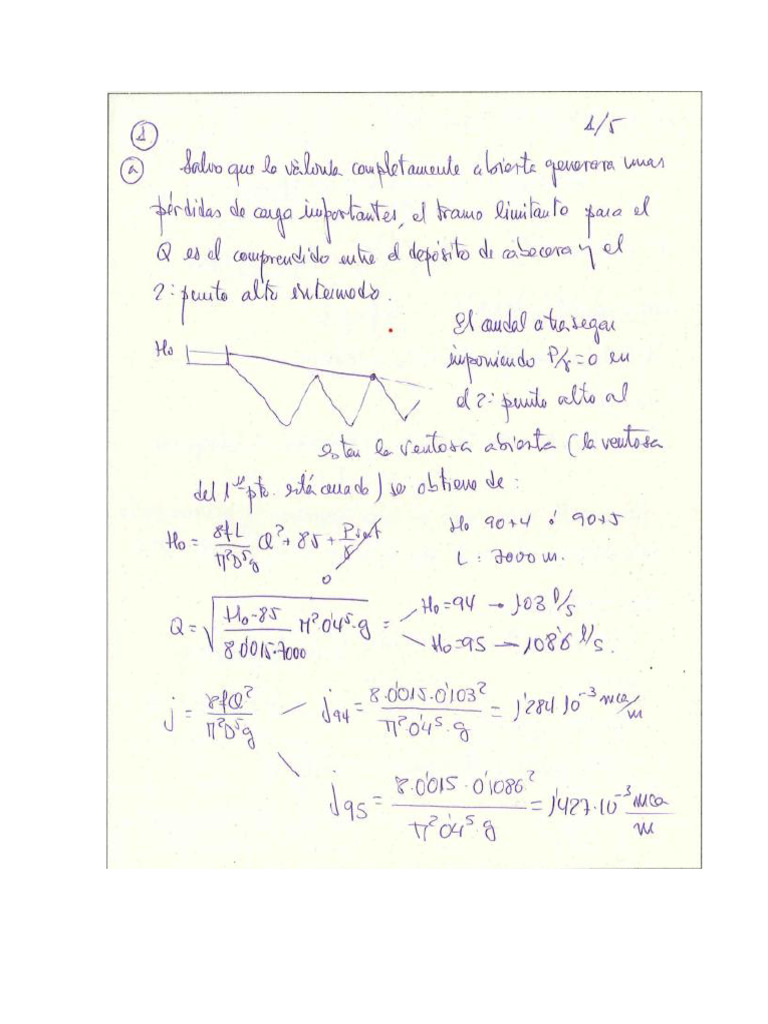 1/5
1
a Salvo que la válvula completamente abierta generara unas
pérdidas de carga importantes, el tramo limitante para el
Q es el comprendido entre el depósito de cabecera y el
2º punto alto intermedio.
El caudal a trasegar
Ho
imponiendo P/γ=0 en
el 2º punto alto al
estar la ventosa abierta (la ventosa
del 1er pto. está cerrada) se obtiene de:
Ho = 8fL/π²D⁵g Q² + 85 + P/γ 0
Ho 90+4 ó 90+5
L: 7000 m.
Q = √((Ho-85)/(8·0'015·7000) π²·0'4⁵·g) = Ho=94 → 103 l/s
Ho=95 → 108'6 l/s.
j = 8fQ²/π²D⁵g
j94 = 8·0'015·0'103²/π²0'4⁵·g = 1'284 10⁻³ mca/m
j95 = 8·0'015·0'1086²/π²0'4⁵·g = 1'427·10⁻³ mca/m